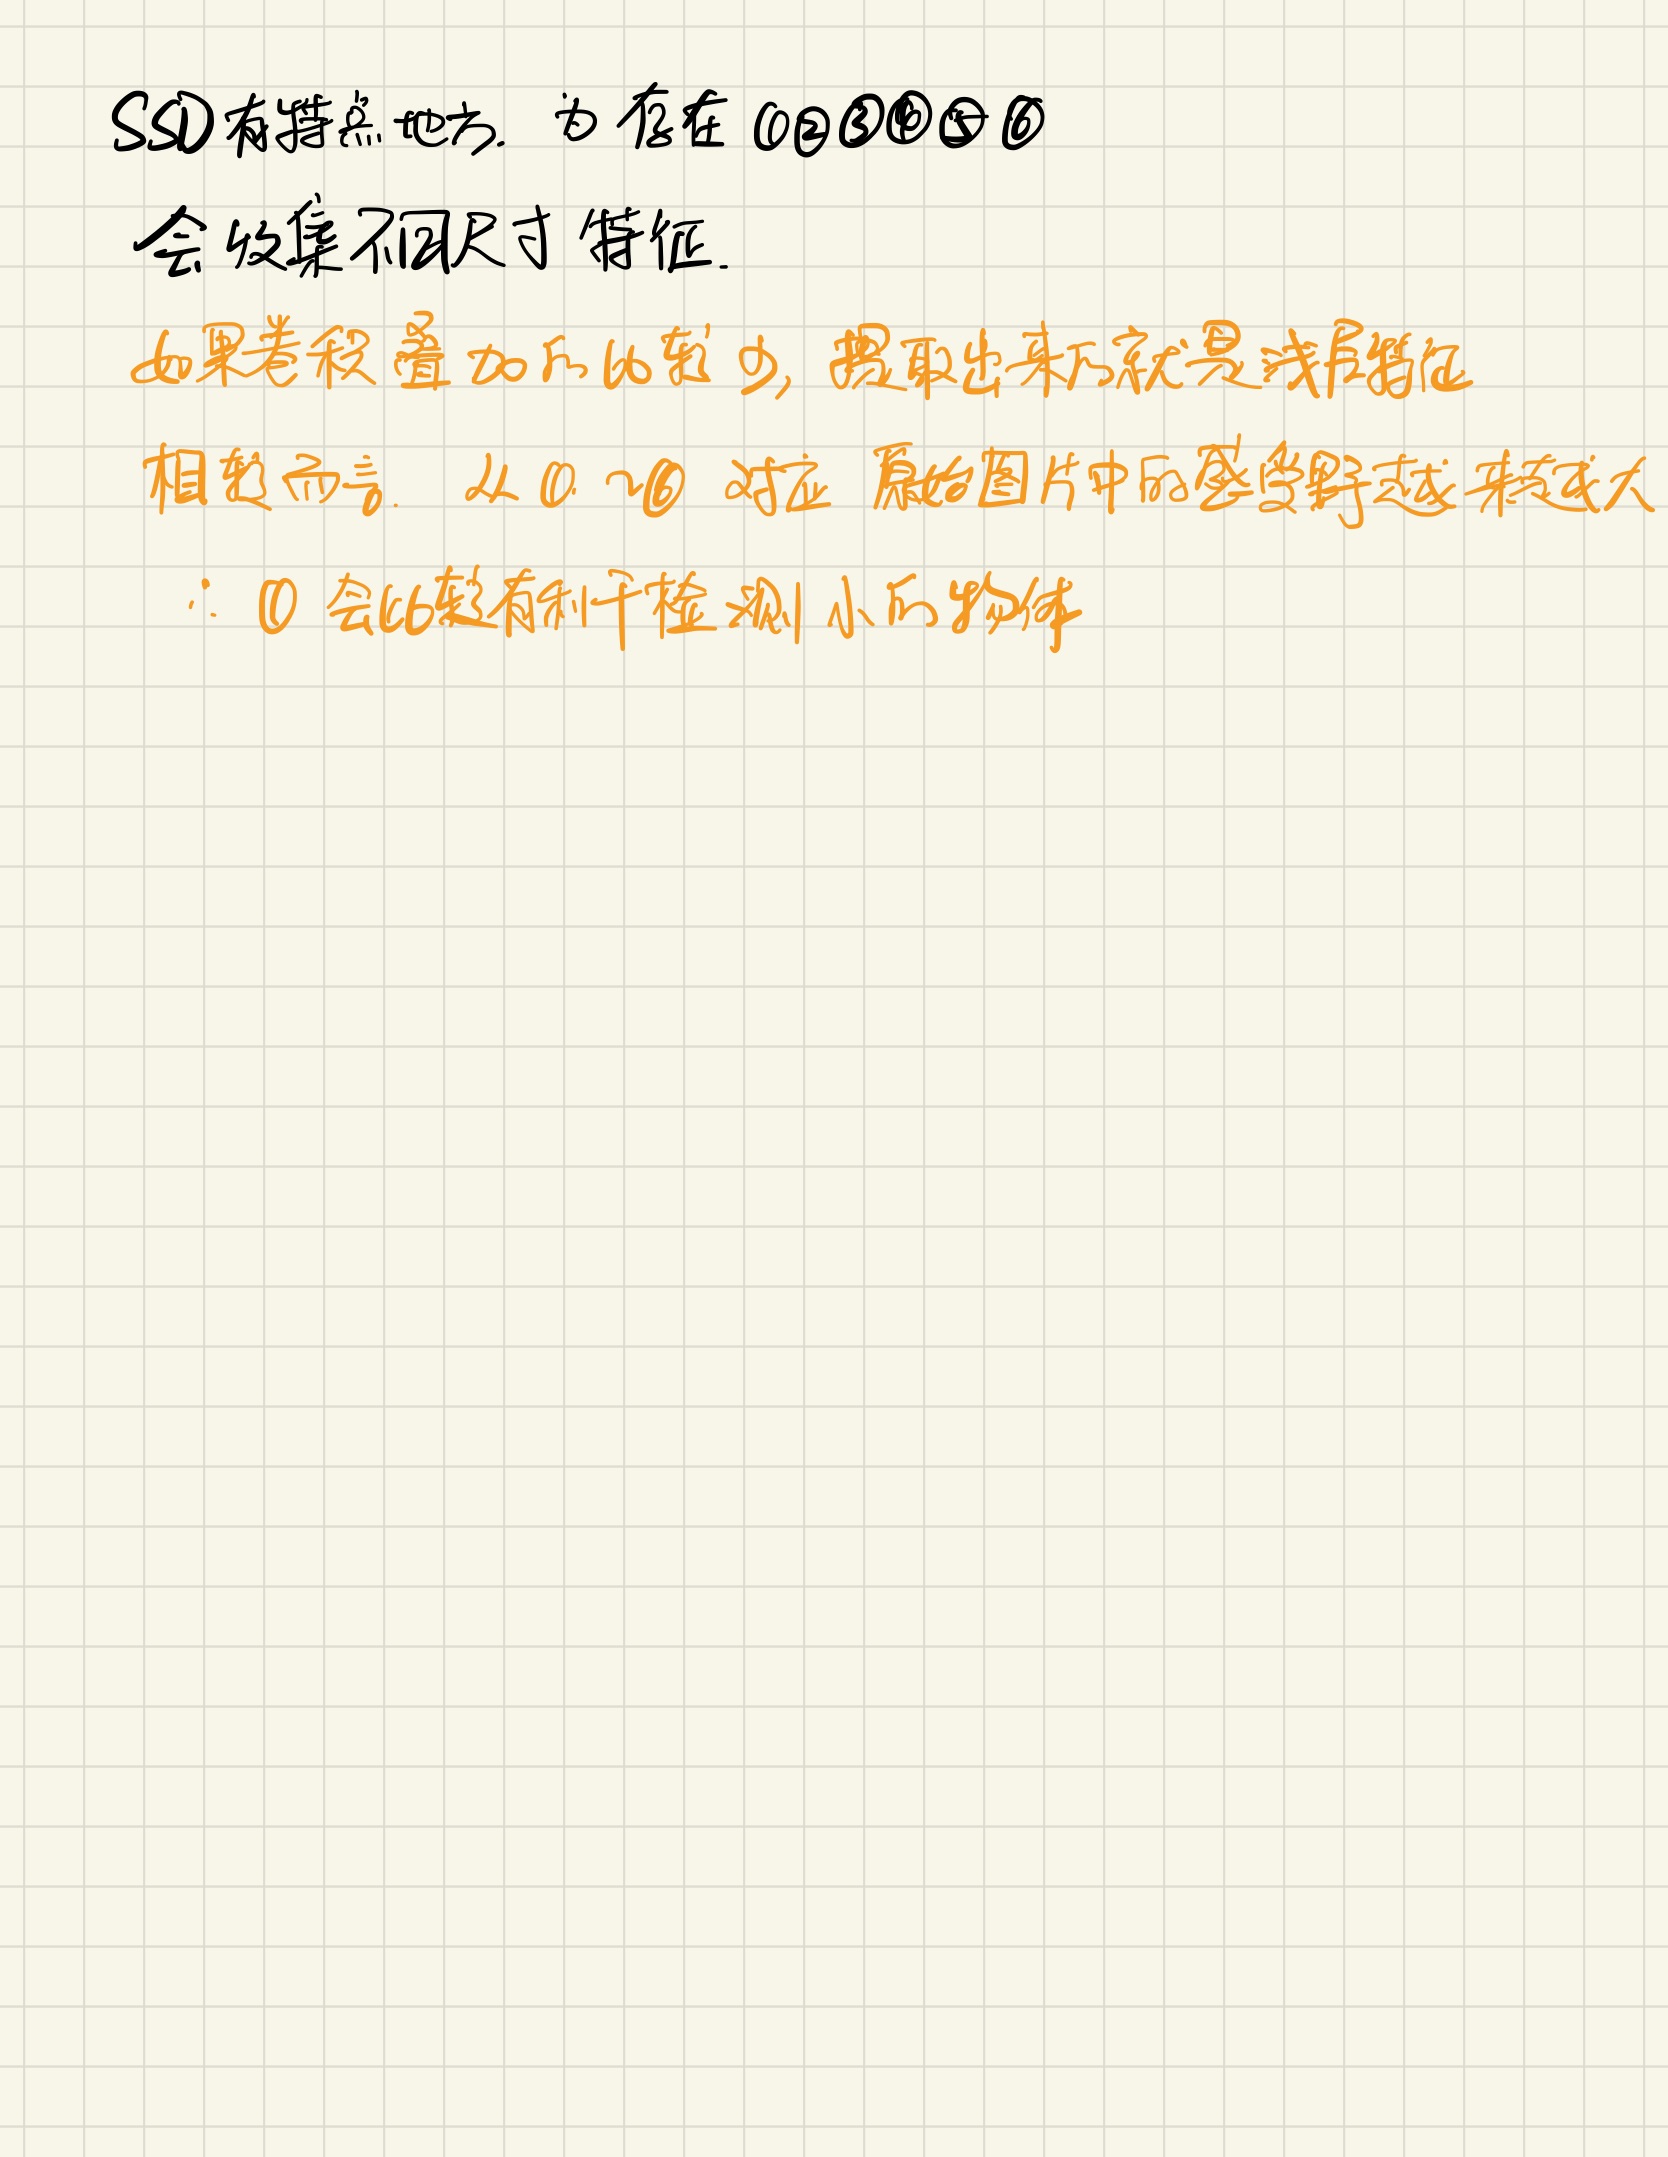 SSD有特点地方. 为存在①②③④⑤⑥
会收集不同尺寸特征.
如果卷积叠加的比较少, 提取出来的就是浅层特征
相较而言. 从①~⑥ 对应 原始图片中的感受野越来越大
∴ ① 会比较有利于检测小的物体